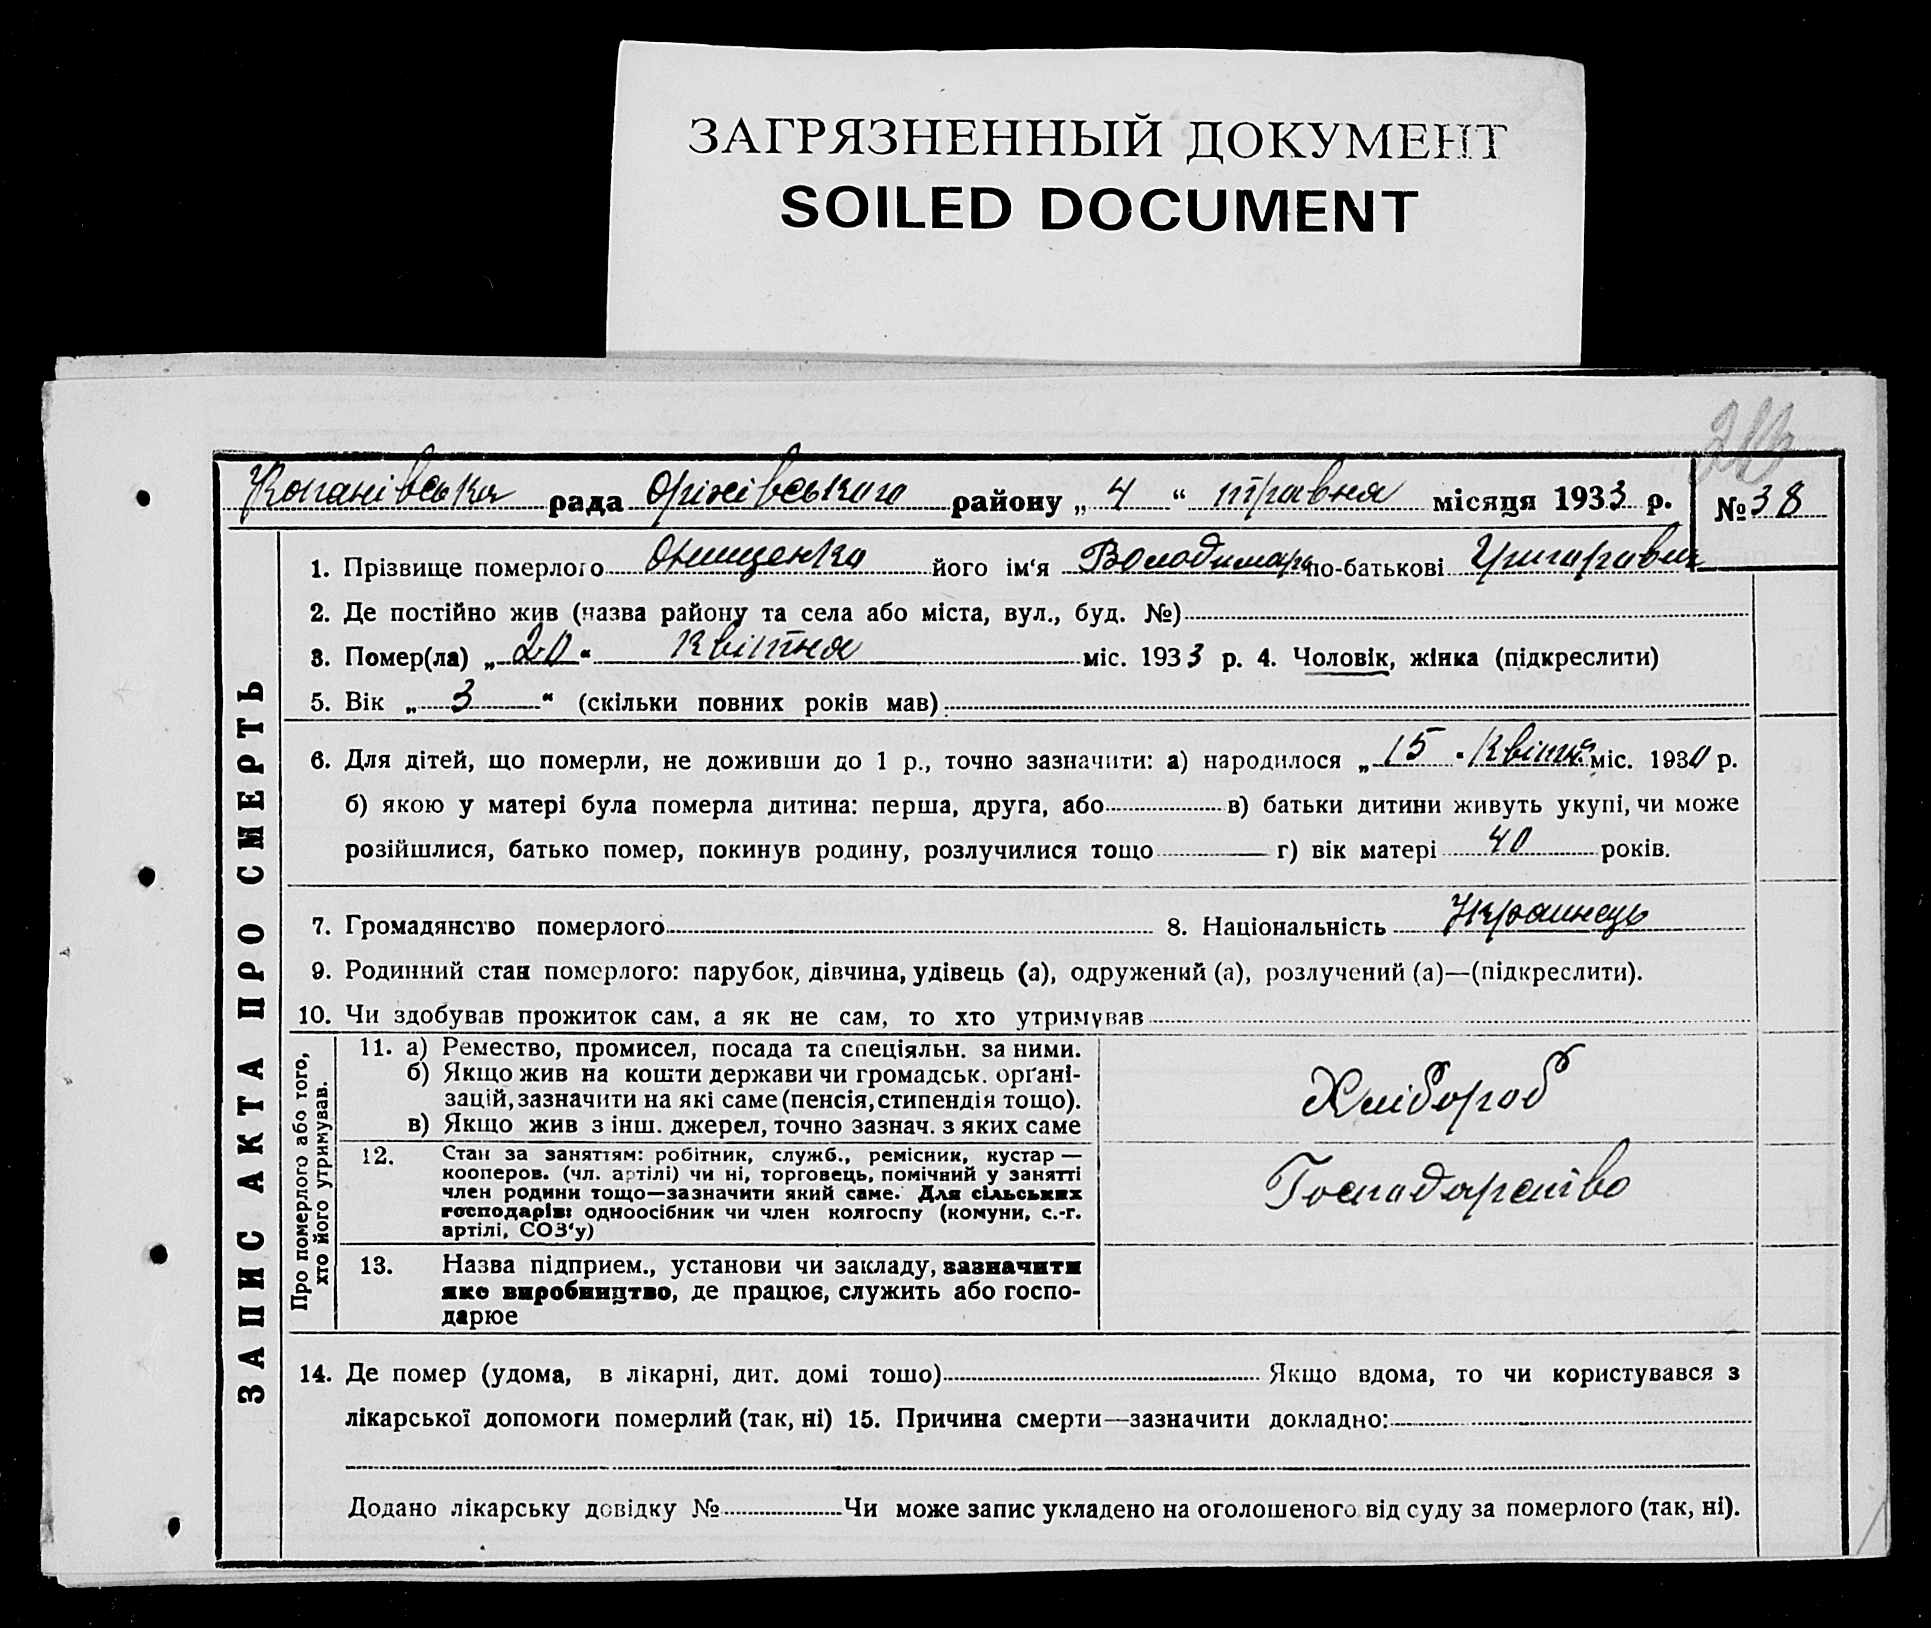 ЗАГРЯЗНЕННЫЙ ДОКУМЕНТ
SOILED DOCUMENT
Копанівська рада Оріхівського району „ 4 “ травня місяця 1933 р. № 38
1. Прізвище померлого Онищенко його ім'я Володимир по-батькові Григорович
2. Де постійно жив (назва району та села або міста, вул., буд. №)
3. Помер(ла) „ 20 “ Квітня міс. 1933 р. 4. Чоловік, жінка (підкреслити)
5. Вік „ 3 “ (скільки повних років мав)
6. Для дітей, що померли, не доживши до 1 р., точно зазначити: а) народилося „ 15 “ Квітня міс. 1930 р.
б) якою у матері була померла дитина: перша, друга, або в) батьки дитини живуть укупі, чи може
розійшлися, батько помер, покинув родину, розлучилися тощо г) вік матері 40 років.
7. Громадянство померлого 8. Національність Українець
9. Родинний стан померлого: парубок, дівчина, удівець (а), одружений (а), розлучений (а)—(підкреслити).
10. Чи здобував прожиток сам, а як не сам, то хто утримував
11. а) Ремество, промисел, посада та спеціяльн. за ними.
б) Якщо жив на кошти держави чи громадськ. орґані-
зацій, зазначити на які саме (пенсія, стипендія тощо).
в) Якщо жив з інш. джерел, точно зазнач. з яких саме
Хлібороб
12. Стан за заняттям: робітник, служб., ремісник, кустар —
кооперов. (чл. артілі) чи ні, торговець, помічний у занятті
член родини тощо—зазначити який саме. Для сільських
господарів: одноосібник чи член колгоспу (комуни, с.-г.
артілі, СОЗ'у)
Господарство
13. Назва підприєм., установи чи закладу, зазначити
яке виробництво, де працює, служить або госпо-
дарює
14. Де помер (удома, в лікарні, дит. домі тошо) Якщо вдома, то чи користувався з
лікарської допомоги померлий (так, ні) 15. Причина смерти—зазначити докладно:
Додано лікарську довідку № Чи може запис укладено на оголошеного від суду за померлого (так, ні).
ЗАПИС АКТА ПРО СМЕРТЬ
Про померлого або того,
хто його утримував.